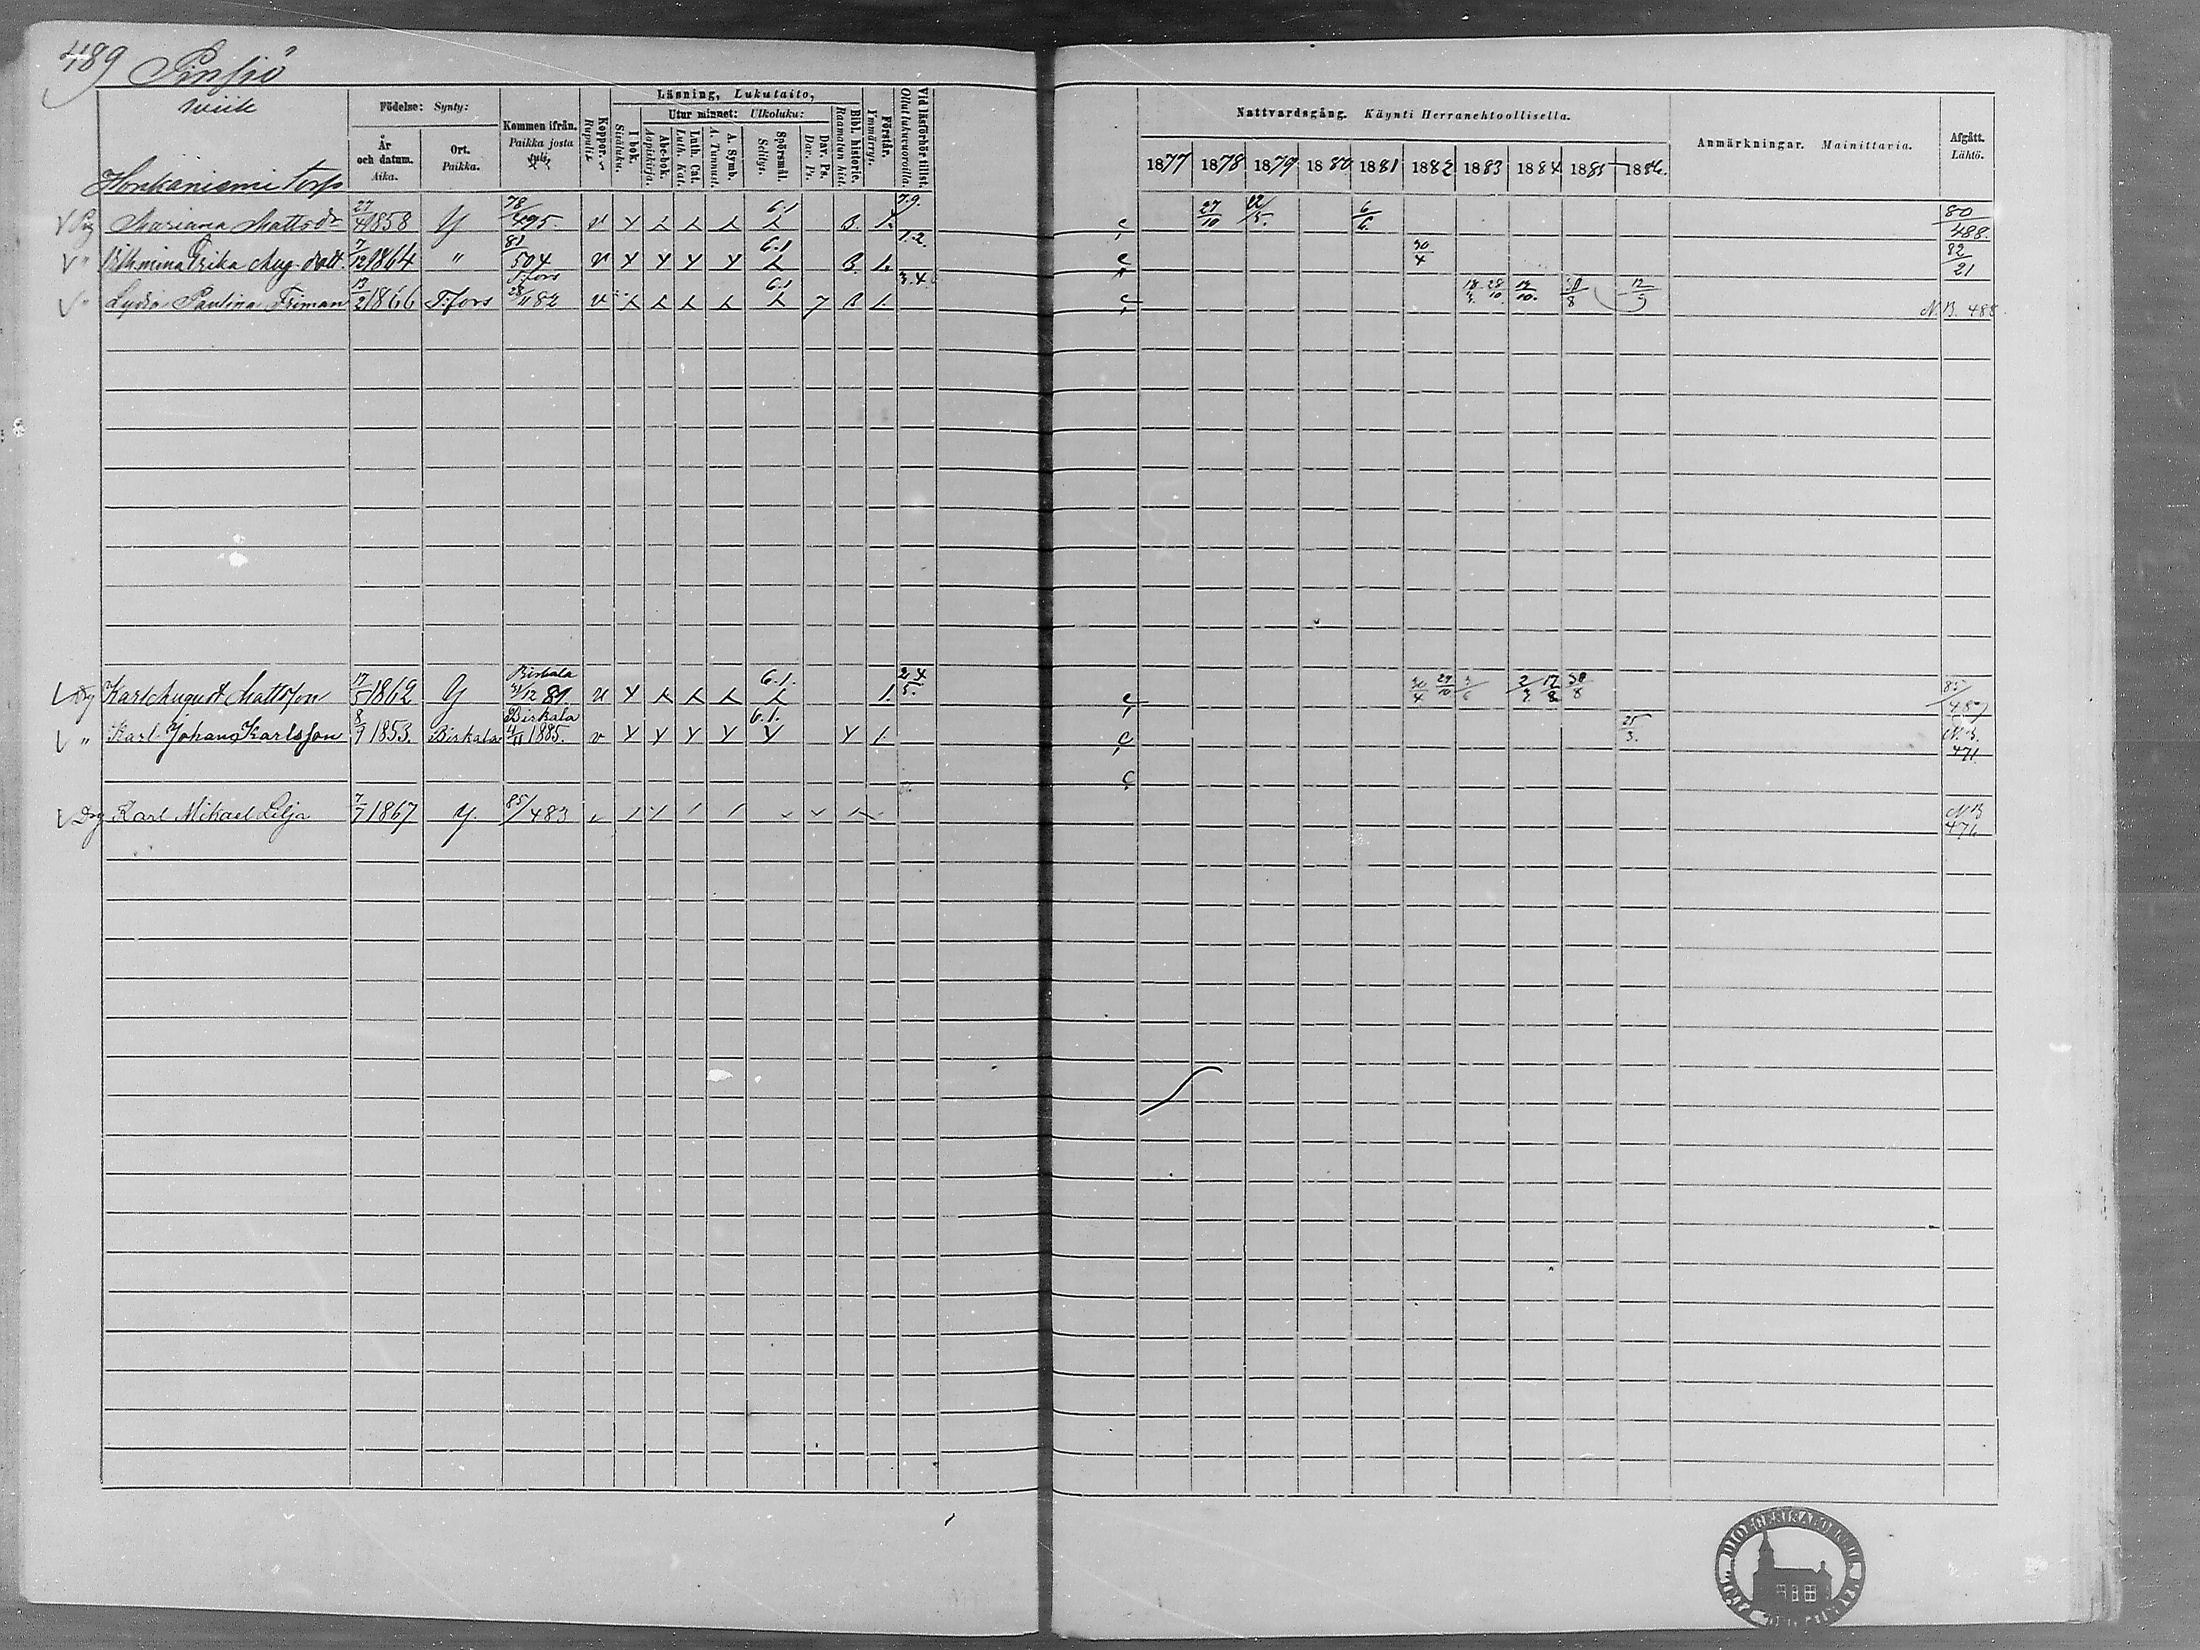 489 Pinsiö
Födelse: Synty:
År och datum. Aika.
Ort. Paikka.
Kommen ifrån. Paikka josta tuli.
Koppor. Rupuli.
Läsning, Lukutaito,
I bok. Sisäluku.
Utur minnet: Ulkoluku:
Abc-bok. Aapiskirja.
Luth. Cat. Luth. Kat.
A. Symb. A. Tunnust.
Spörsmål. Selitys.
Dav. Ps. Dav. Ps.
Bibl. historie. Raamatun hist.
Förstår. Ymmärrys.
Vid läsförhör tillst. Ollut lukuvuoroilla.
Nattvardsgång. Käynti Herranehtoollisella.
1877 1878 1879 1880 1881 1882 1883 1884 1885 1886.
Anmärkningar. Mainittavia.
Afgått. Lähtö.
Honkaniemi torp
Mariana Mattsdr 27/4 1858 Y 78/495. v 6.1 B. 1. 7.9. c 27/10 6/6 80/488.
Erika Aug. dott. 7/12 1864 " 81/504 v 6.1 B. 1. 1.2. 30/4 82/21
Lydia Paulina Friman 13/2 1866 T:fors T:fors 28/11 82 v 6.1 7 B 1. 3.4. 12/10. 12/9 N.B. 488
Drg Karl August Mattsson 17/5 1862 Y Birkala 31/12 81 v 6.1. 1. 2.4 5. c 30/4 29/10 30/8 85/487
" Karl Johan Karlsson 8/9 1853. Birkala Birkala 4/11 1885. v 6.1. 1. c 25/3. N.B. 471
c
Drg Karl Mikael Lilja 7/7 1867 Y. 85/483 v N.B 476